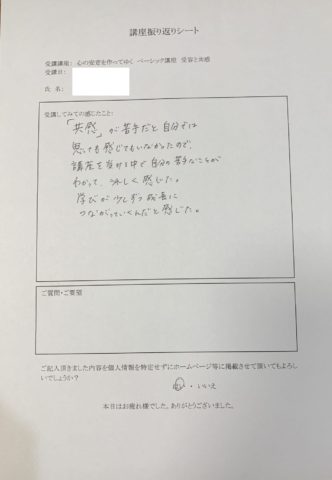 講座振り返りシート
受講講座: 心の安定を作ってゆく ベーシック講座 受容と共感
受講日:
氏 名:
受講してみての感じたこと:
「共感」が苦手だと自分では
思っても感じてもいなかったので、
講座を受ける中で自分の苦手なことが
わかって、涼しく感じた。
学びが少しずつ成長に
つながっていくんだと感じた。
ご質問・ご要望
ご記入頂きました内容を個人情報を特定せずにホームページ等に掲載させて頂いてもよろし
いでしょうか?
・いいえ
本日はお疲れ様でした。ありがとうございました。